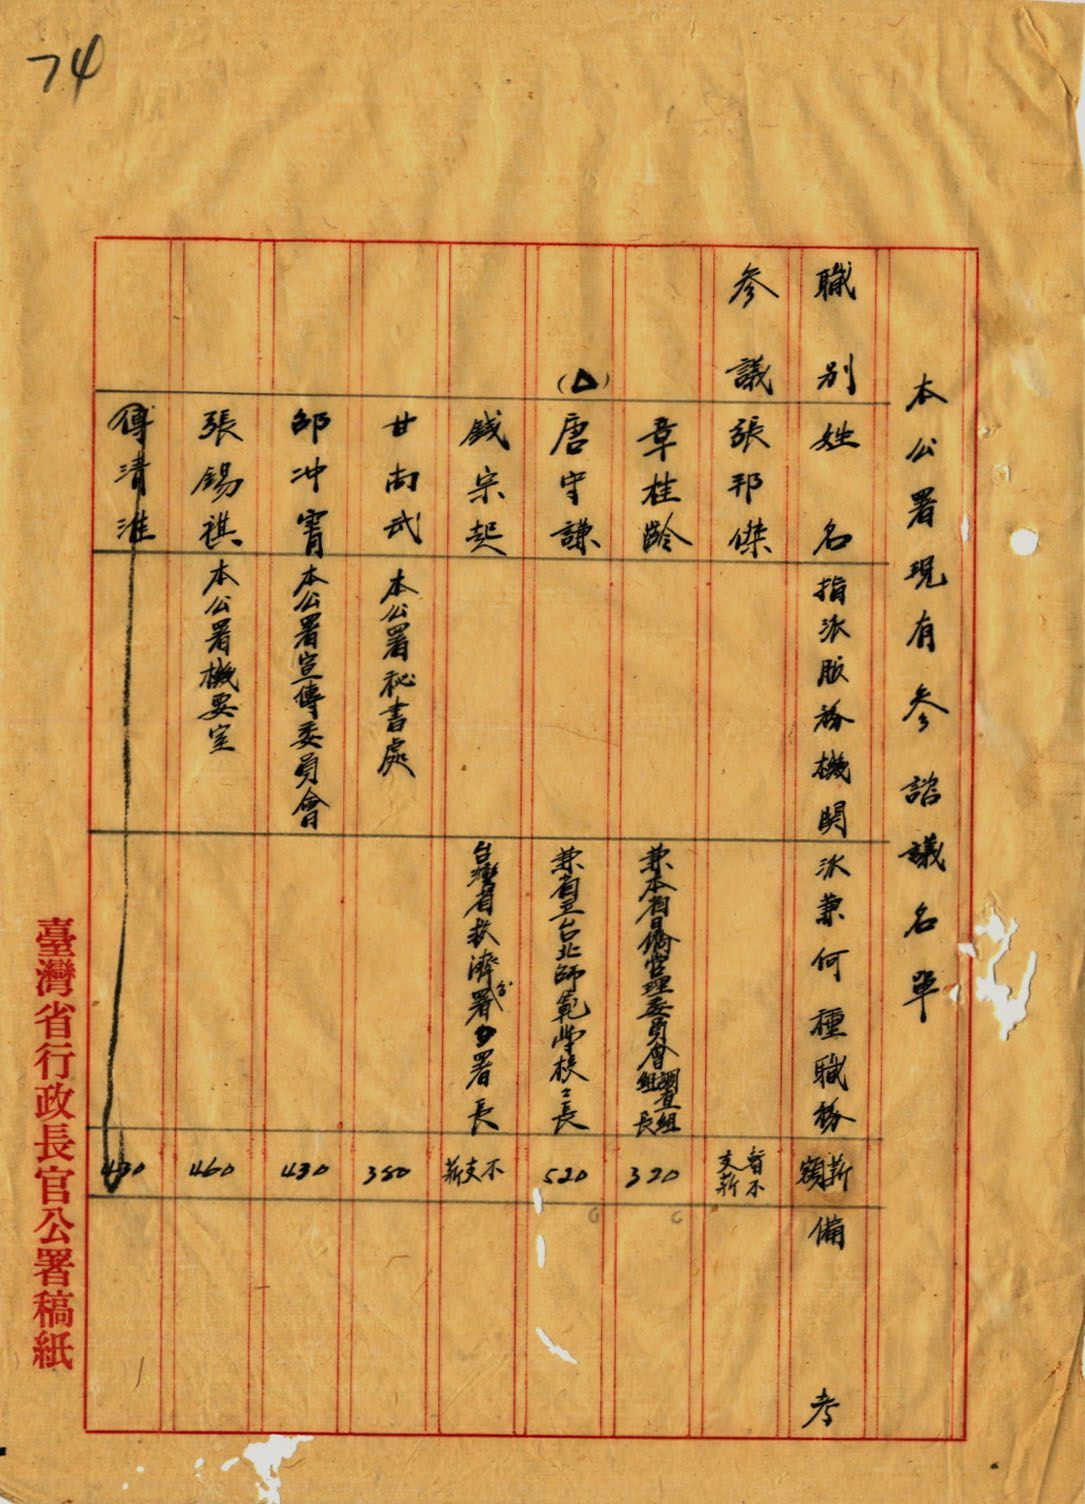 74
本公署現有參諮議名單
職別 姓名 指派服務機関 派兼何種職務 薪額 備考
參議 張邦傑 暫不支薪
章桂齡 兼本省日僑管理委員會調查組組長 320
(△) 唐守謙 兼省立台北師範学校々長 520
錢宗起 台灣省救濟分署署長 不支薪
甘尚武 本公署秘書處 380
邵冲霄 本公署宣傳委員會 430
張錫祺 本公署機要室 460
傅清淮 430
臺灣省行政長官公署稿紙